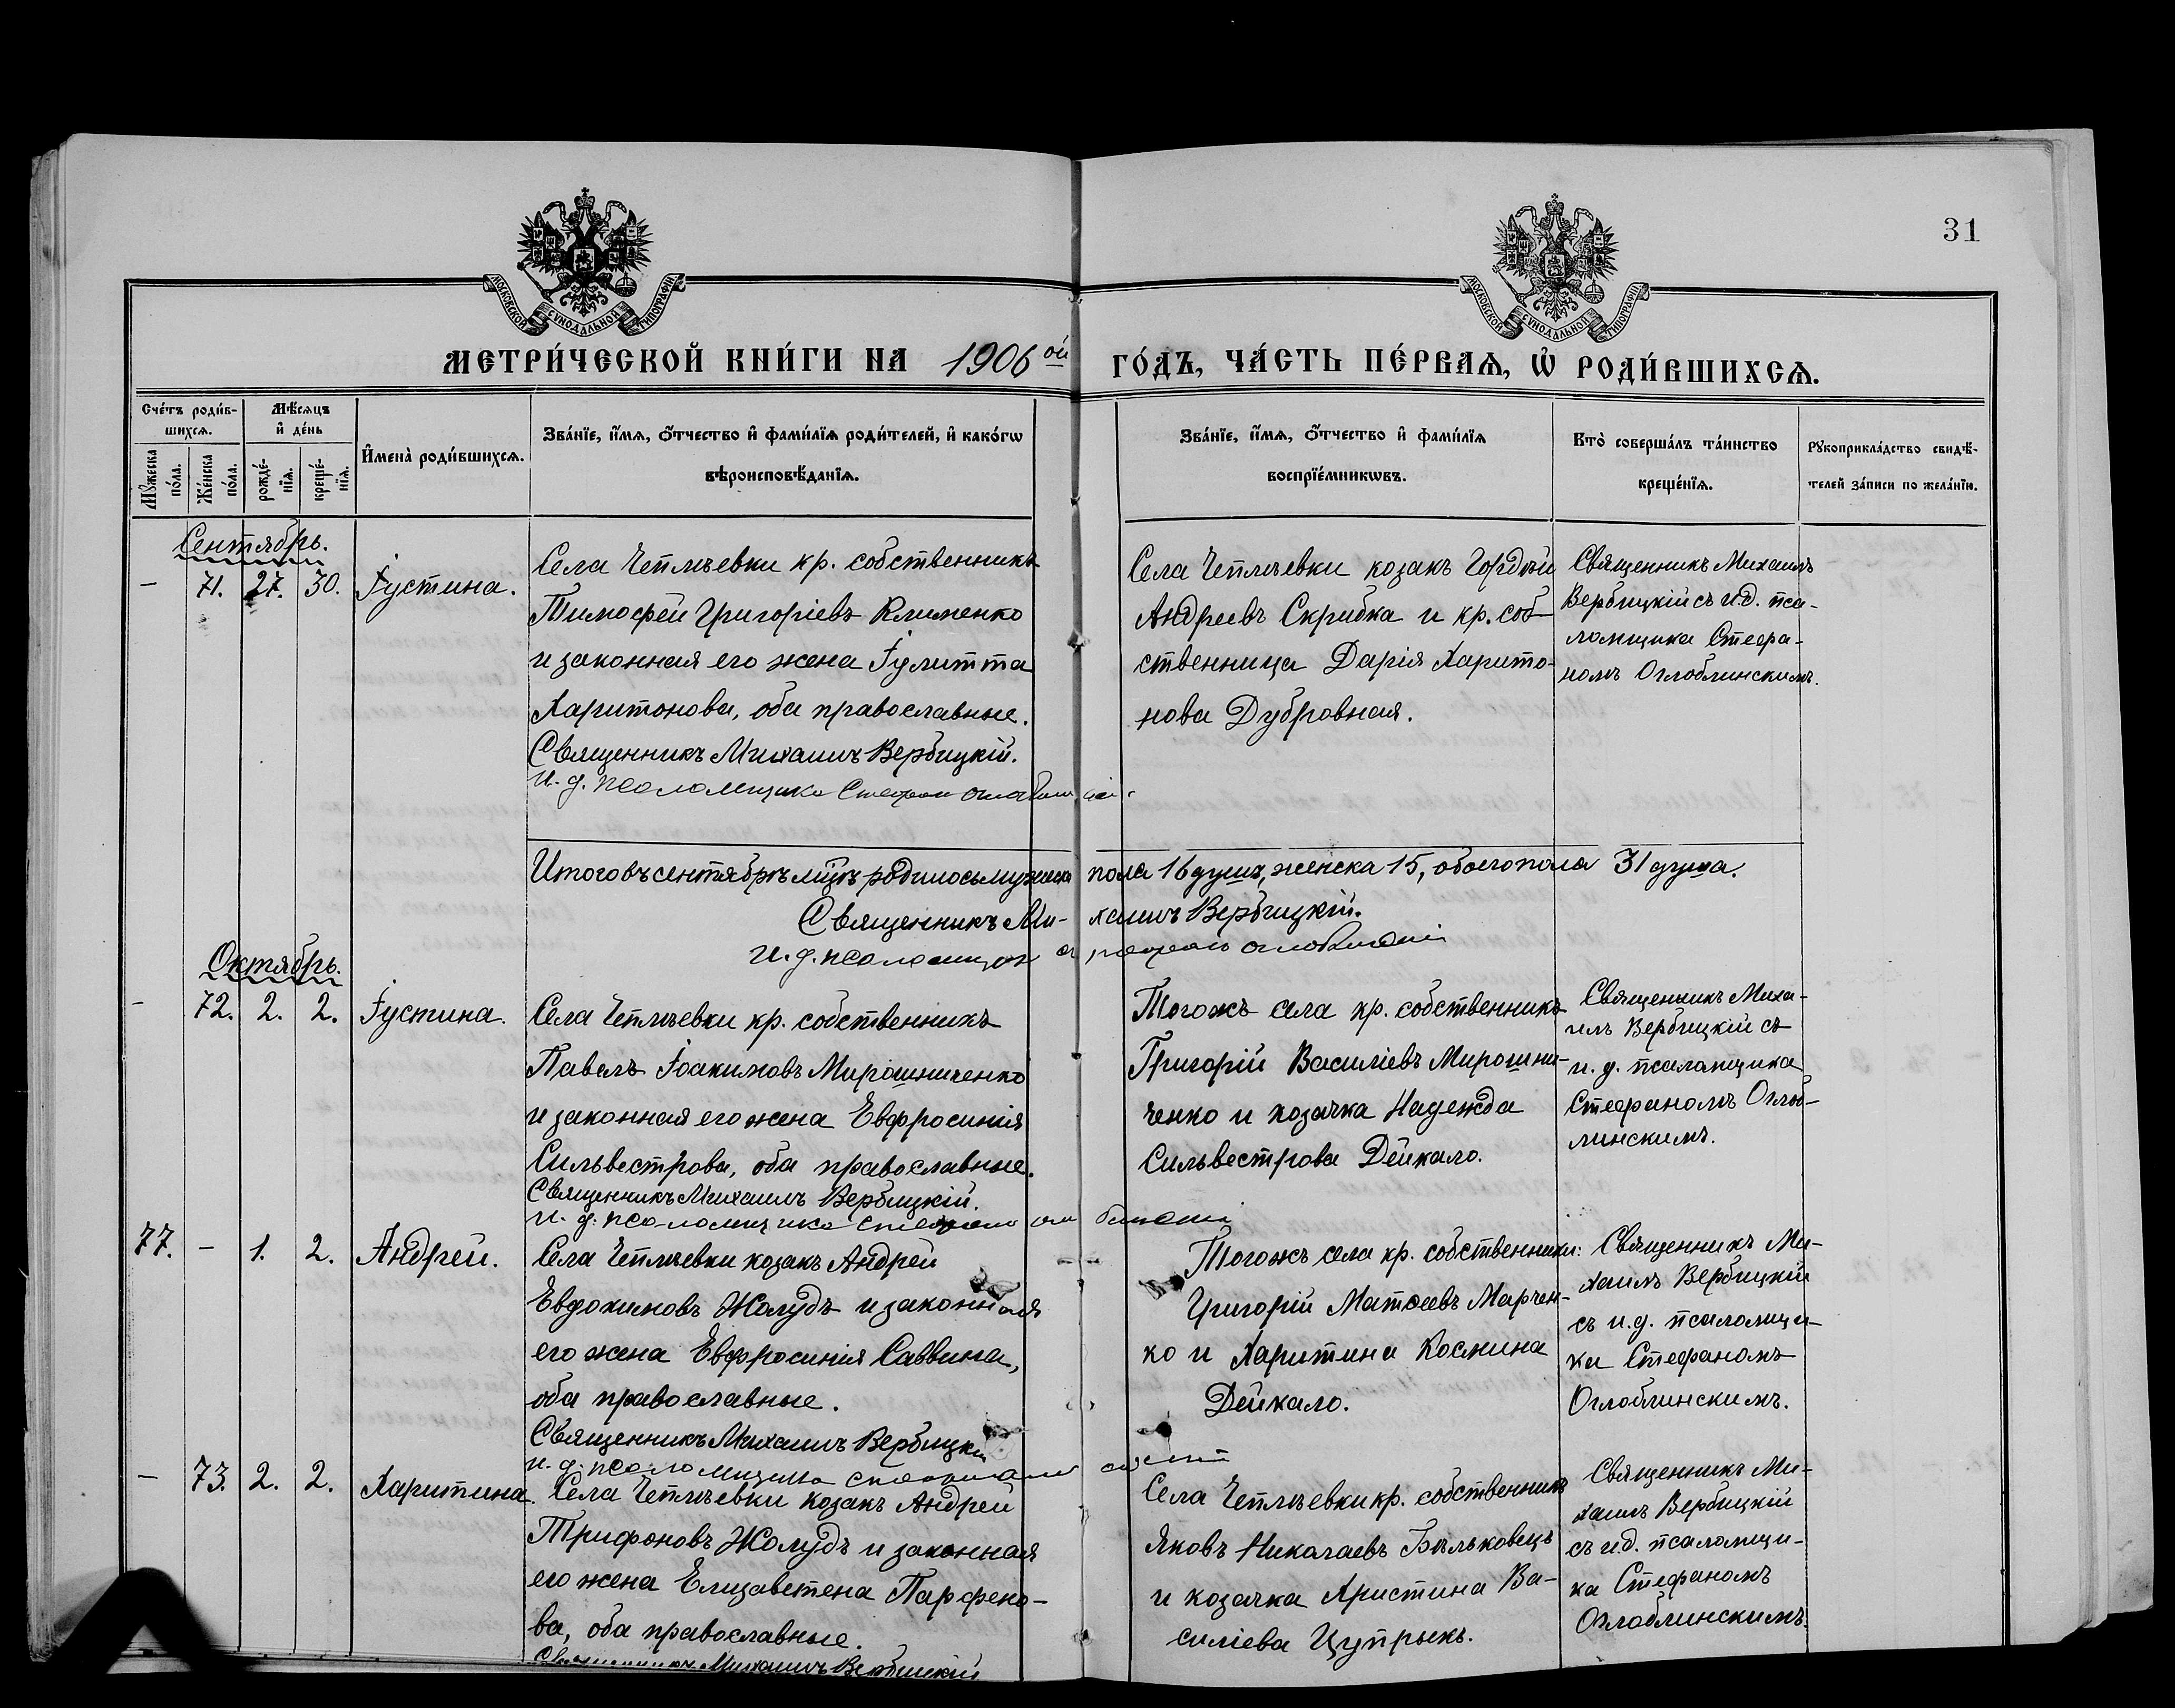 31
МОСКОВСКОЙ СѴНОДАЛЬНОЙ ТИПОГРАФІИ
МОСКОВСКОЙ СѴНОДАЛЬНОЙ ТИПОГРАФІИ
МЕТРИ́ЧЕСКОЙ КНИ́ГИ НА 1906ой ГО́ДЪ, ЧА́СТЬ ПЕ́РВАѦ, Ѡ҆ РОДИ́ВШИХСѦ.
Сче́тъ роди́в-
шихсѧ.
Мꙋ́жеска по́ла.
Же́нска по́ла.
Мѣ́сѧцъ и҆ де́нь
рожде́-
нїѧ.
креще́-
нїѧ.
И҆мена̀ роди́вшихсѧ.
Зва́нїе, и҆́мѧ, ѻ҆́тчество и҆ фами́лїѧ роди́телей, и҆ како́гѡ
вѣроисповѣ́данїѧ.
Зва́нїе, и҆́мѧ, ѻ҆́тчество и҆ фами́лїѧ
воспрїе́мникѡвъ.
Кто̀ соверша́лъ та́инство
креще́нїѧ.
Рꙋкоприкла́дство свидѣ́-
телей за́писи по жела́нїю.
Сентябрь.
– 71. 27. 30. Іустина.
Села Чеплѣевки кр. собственникъ
Тимофей Григоріевъ Клименко
и законная его жена Іулитта
Харитонова, оба православные.
Священникъ Михаилъ Вербицкій.
И. д. псаломщика Стефан
Села Чеплѣевки козакъ Гордѣй
Андреевъ Скрибка и кр. соб-
ственница Дарія Харито-
нова Дубровная.
Священникъ Михаилъ
Вербицкій съ и.д. пса-
ломщика Стефа-
номъ Оглоблинскимъ.
Итого въ сентябрѣ м̃цѣ родилось мужеска пола 16 душъ, женска 15, обоего пола 31 душа.
Священникъ Ми- хаилъ Вербицкій.
И. д. псаломщика Стефанъ Оглоблинскій
Октябрь.
– 72. 2. 2. Іустина.
Села Чеплѣевки кр. собственникъ
Павелъ Іоакимовъ Мирошниченко
и законная его жена Евфросинія
Сильвестрова, оба православные.
Священникъ Михаилъ Вербицкій.
И. д. псаломщика Стефанъ
Тогожъ села кр. собственникъ
Григорій Василіевъ Мирошни-
ченко и козачка Надежда
Сильвестрова Дейкало.
Священникъ Миха-
илъ Вербицкій съ
и. д. псаломщика
Стефаномъ Оглоб-
линскимъ.
77. – 1. 2. Андрей.
Села Чеплѣевки козакъ Андрей
Евдокимовъ Жолудь и законная
его жена Евфросинія Саввина,
оба православные.
Священникъ Михаилъ Вербицкій
И. д. псаломщика
Тогожъ села кр. собственники:
Григорій Матѳеевъ Марчен-
ко и Харитина Космина
Дейкало.
Священникъ Ми-
хаилъ Вербицкій
съ и.д. псаломщи-
ка Стефаномъ
Оглоблинскимъ.
– 73. 2. 2. Харитина.
Села Чеплѣевки козакъ Андрей
Трифоновъ Жолудь и законная
его жена Елизавета Парфено-
ва, оба православные.
Священникъ Михаилъ Вербицкій
Села Чеплѣевки кр. собственникъ
Яковъ Николаевъ Бѣльковецъ
и козачка Христина Ва-
силіева Цупрыкъ.
Священникъ Ми-
хаилъ Вербицкій
съ и.д. псаломщи-
ка Стефаномъ
Оглоблинскимъ.